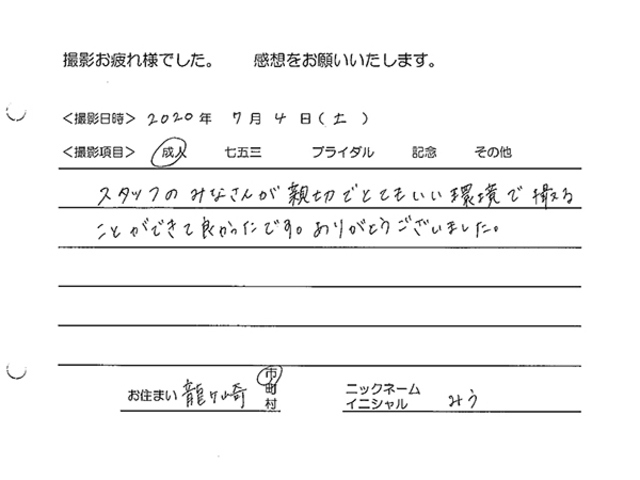 撮影お疲れ様でした。 感想をお願いいたします。
＜撮影日時＞ 2020年 7月 4日(土)
＜撮影項目＞ 成人 七五三 ブライダル 記念 その他
スタッフのみなさんが親切でとてもいい環境で撮る
ことができて良かったです。ありがとうございました。
お住まい 龍ヶ崎 市町村
ニックネーム
イニシャル みう